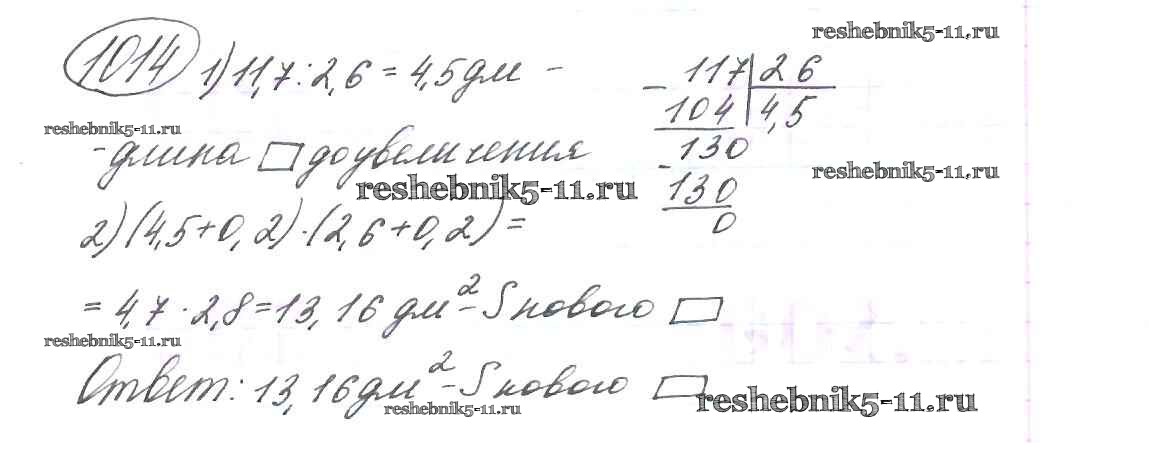 reshebnik5-11.ru
1014 1) 11,7 : 2,6 = 4,5 дм -
117 | 26
- 104 | 4,5
130
- 130
0
reshebnik5-11.ru
- длина ▭ до увеличения
reshebnik5-11.ru
reshebnik5-11.ru
2) (4,5 + 0,2) · (2,6 + 0,2) =
= 4,7 · 2,8 = 13,16 дм² - S нового ▭
reshebnik5-11.ru
Ответ: 13,16 дм² - S нового ▭
reshebnik5-11.ru
reshebnik5-11.ru